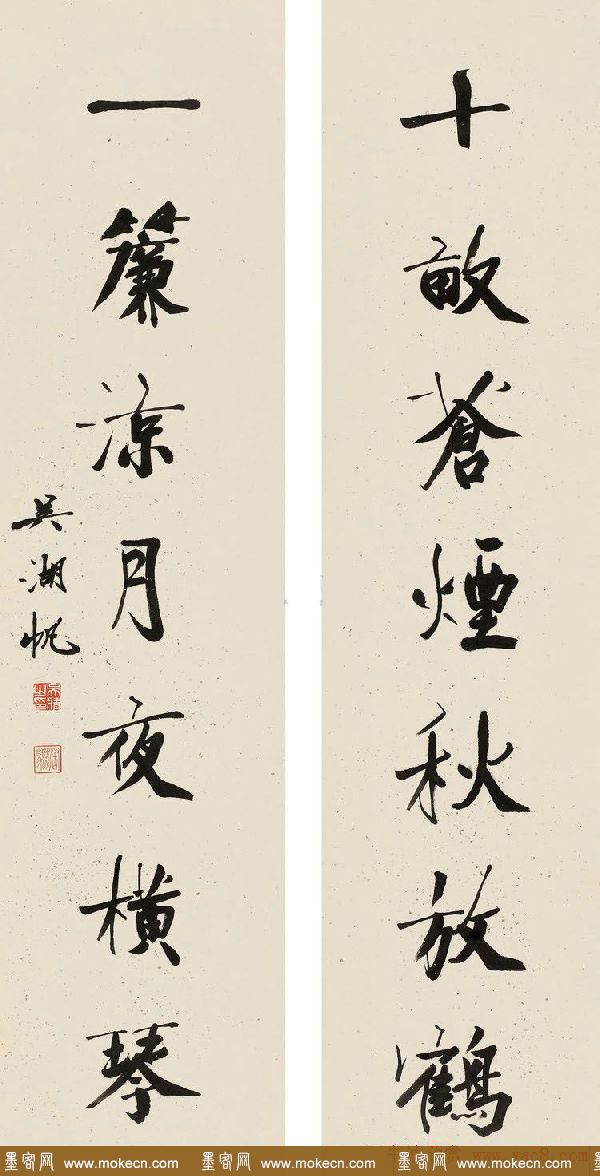 十畝蒼煙秋放鶴
一簾涼月夜橫琴
吳湖帆
墨客网 www.mokecn.com 墨客网 www.mokecn.com 墨客网 www.mokecn.com